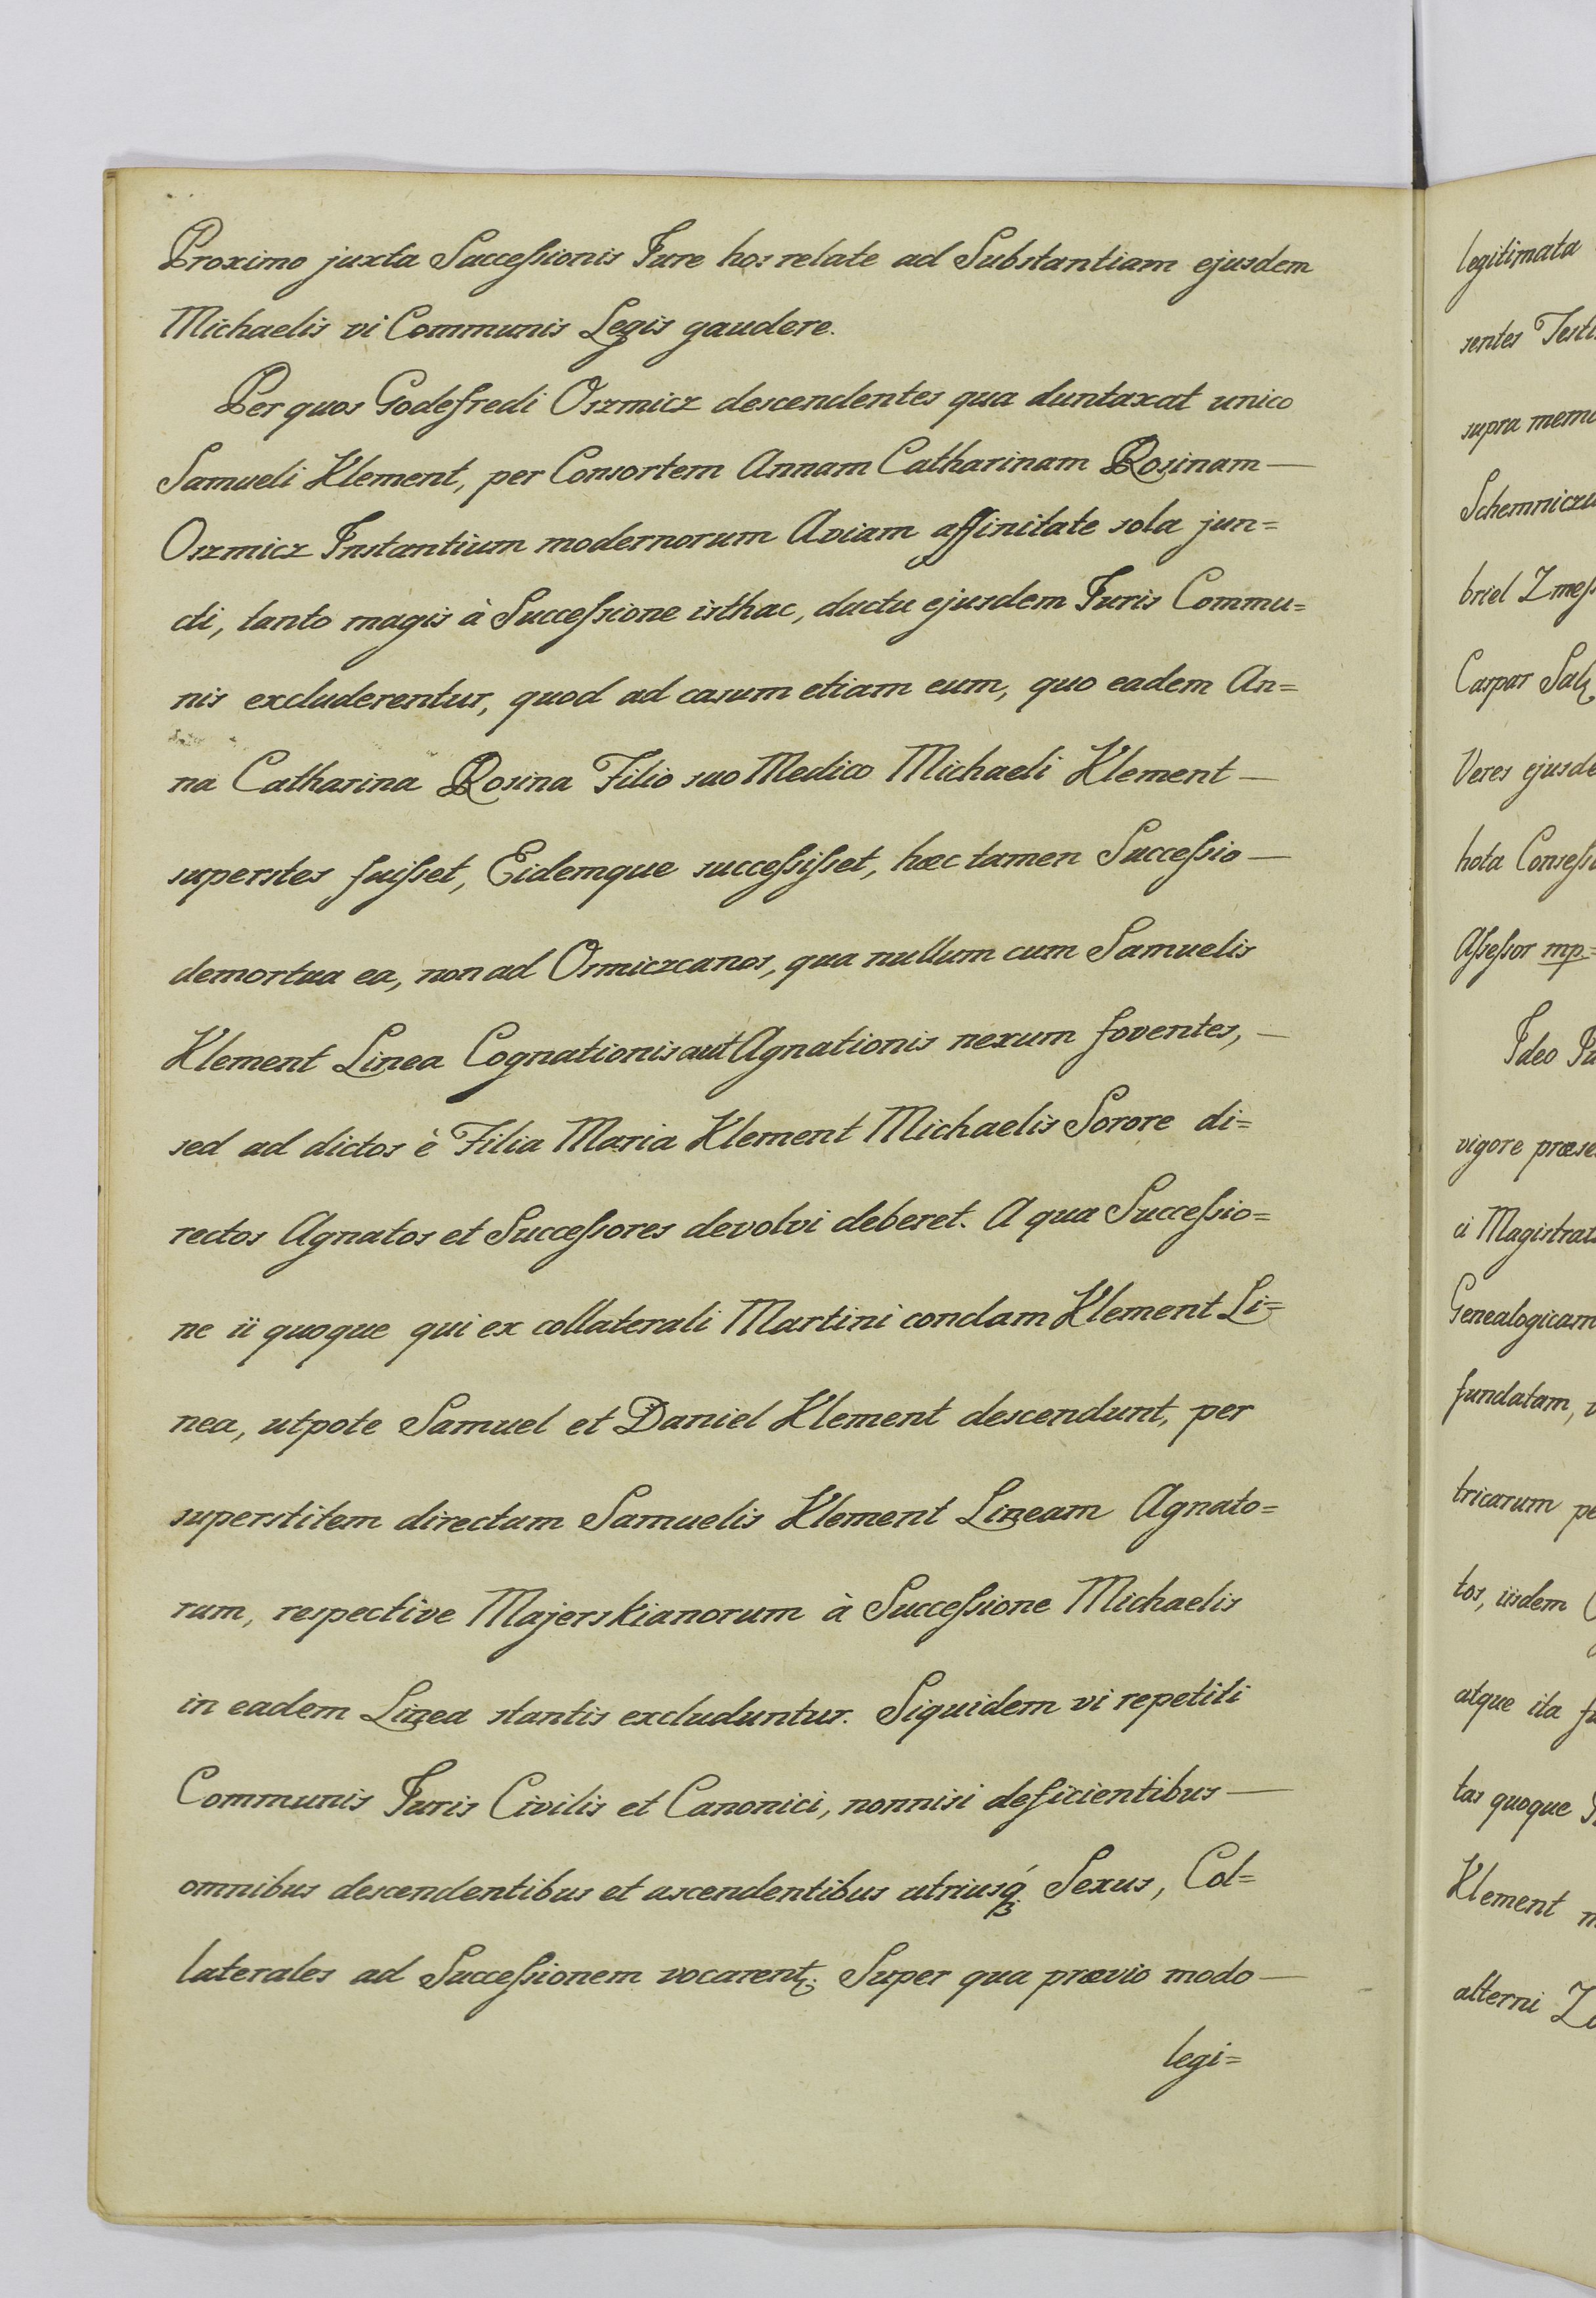 Proximo juxta Succeſsionis Jure hos relate ad Substantiam ejusdem
Michaelis vi Communis Legis gaudere.
Per quos Godefredi Oszmicz descendentes qua duntaxat unico
Samueli Klement, per Consortem Annam Catharinam Rosinam —
Oszmicz Instantium modernorum Aviam affinitate sola jun=
di, tanto magis à Succeſsione isthac, ductu ejusdem Juris Commu=
nis excluderentur, quod ad casum etiam eum, quo eadem An=
na Catharina Rosina Filio suo Medico Michaeli Klement —
superstes fuiſset, Eidemque succeſsiſset, hæc tamen Succeſsio —
demortua ea, non ad Osmiczcanos, qua nullum cum Samuelis
Klement Linea Cognationis aut Agnationis nexum foventes, —
sed ad dictos è Filia Maria Klement Michaelis Sorore di=
rectos Agnatos et Succeſsores devolvi deberet. A qua Succeſsio=
ne ii quoque qui ex collaterali Martini condam Klement Li=
nea, utpote Samuel et Daniel Klement descendunt, per
superstitem directam Samuelis Klement Lineam Agnato=
rum, respective Majerskianorum à Succeſsione Michaelis
in eadem Linea stantis excluduntur. Siquidem vi repetiti
Communis Juris Civilis et Canonici, nonnisi deficientibus —
omnibus descendentibus et ascendentibus utriusq́ꝫ Sexus, Col=
laterales ad Succeſsionem vocarentꝫ. Super qua prævio modo —
legi=
legitimata
sentes Testi
supra memo
Schemniczu
briel Zmeſs
Caspar Sal
Veres ejusde
hota Conseſs
Aſseſsor mp=
Ideo
vigore præse
ci Magistrat
Genealogicam
fundatam,
tricarum pe
tos, iisdem
atque ita
tas quoque
Klement
alterni